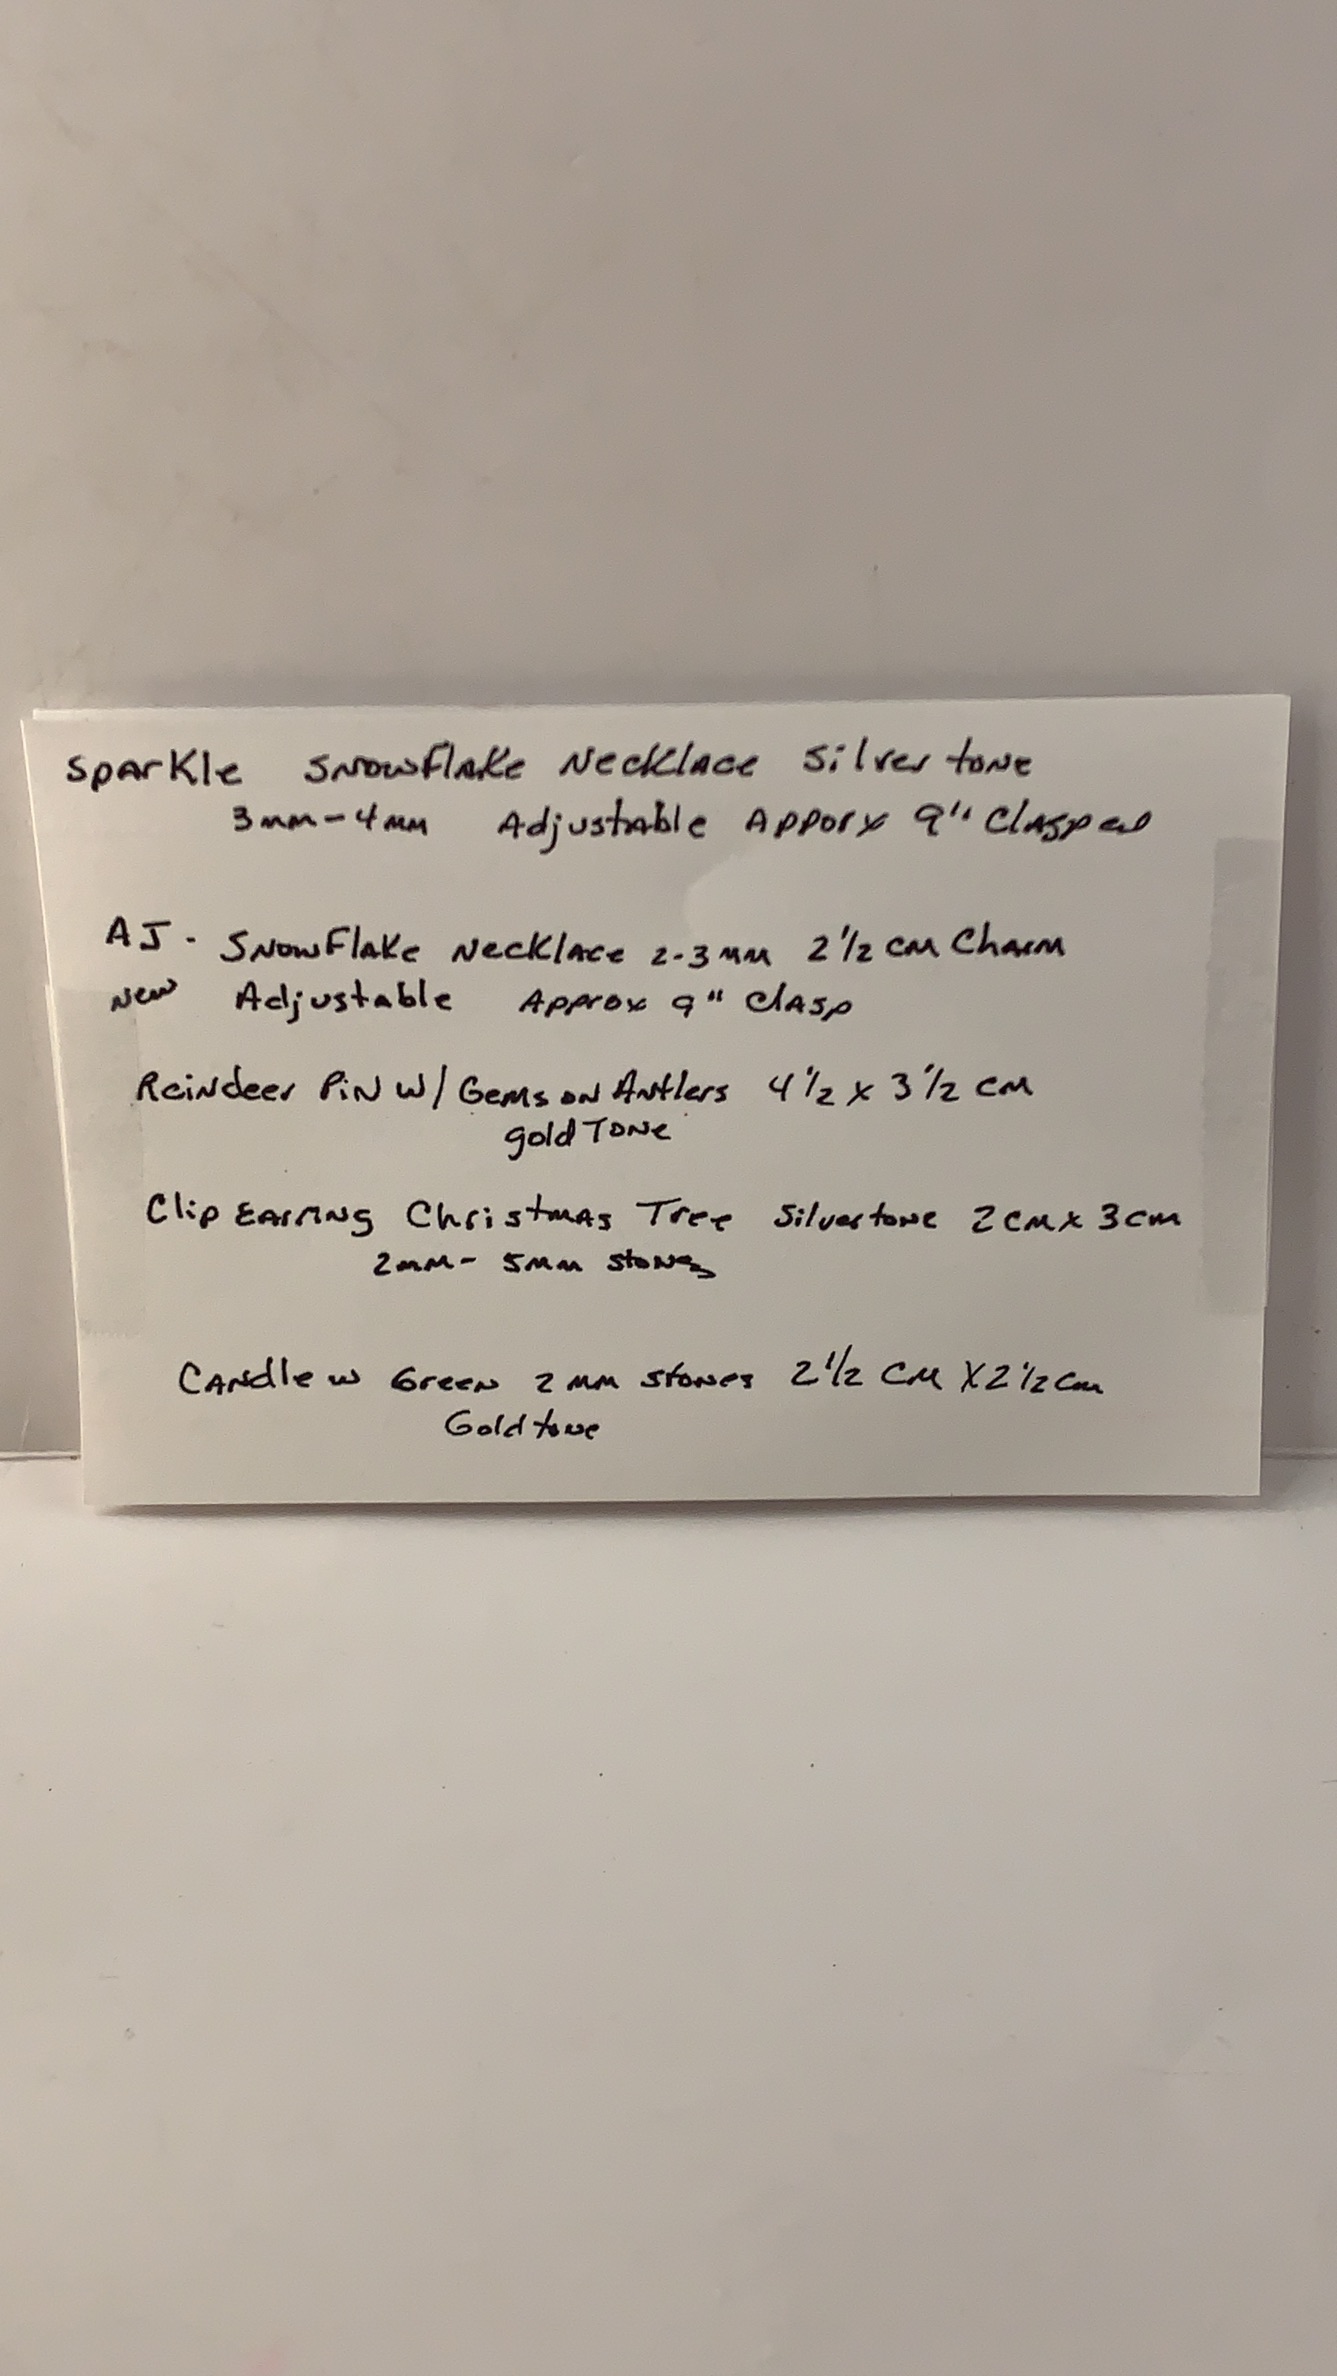 Sparkle Snowflake Necklace Silver tone
3mm-4mm Adjustable Apporx 9" Clasped
AJ. Snowflake Necklace 2-3mm 2 1/2 cm Charm
New Adjustable Approx 9" Clasp
Reindeer Pin w/ Gems on Antlers 4 1/2 x 3 1/2 cm
gold Tone
Clip Earring Christmas Tree Silvertone 2cm x 3cm
2mm- 5mm stones
Candle w Green 2 mm stones 2 1/2 cm X 2 1/2 cm
Gold tone